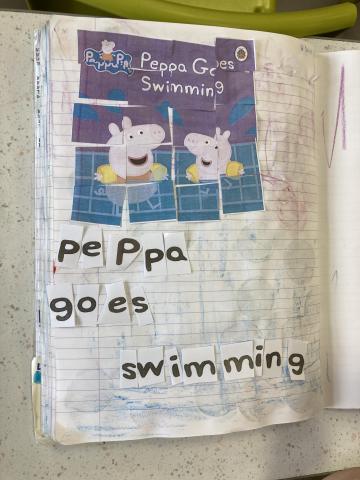 Peppa Pig
Peppa Goes
Swimming
peppa
goes
swimming